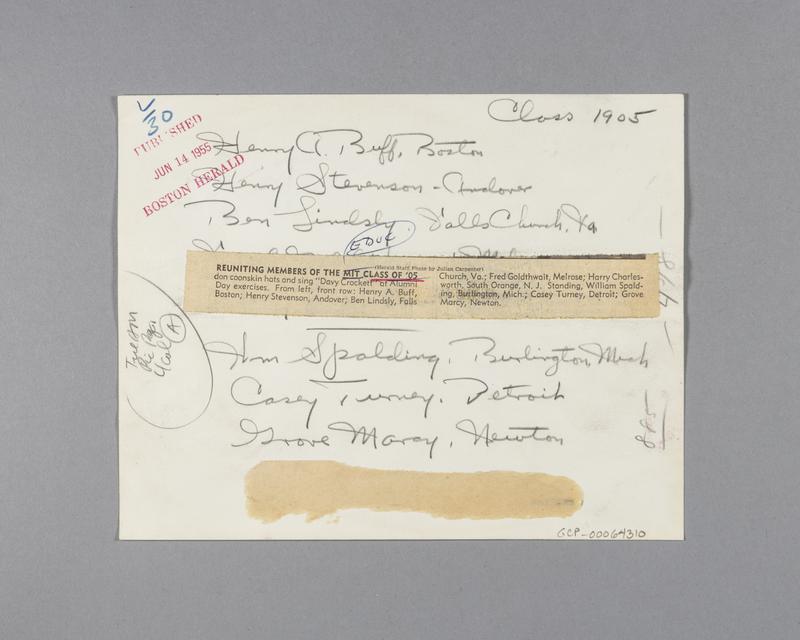 Class 1905
V/30
PUBLISHED
JUN 14 1955
BOSTON HERALD
Henry A. Buff, Boston
Henry Stevenson - Andover
Ben Lindsly, Falls Church, Va
EDUC
(Herald Staff Photo by Julian Carpenter)
REUNITING MEMBERS OF THE MIT CLASS OF '05
don coonskin hats and sing "Davy Crockett" at Alumni
Day exercises. From left, front row: Henry A. Buff,
Boston; Henry Stevenson, Andover; Ben Lindsly, Falls
Church, Va.; Fred Goldthwait, Melrose; Harry Charles-
worth, South Orange, N. J. Standing, William Spald-
ing, Burlington, Mich.; Casey Turney, Detroit; Grove
Marcy, Newton.
498
4 col A
Wm Spalding, Burlington, Mich
Casey Turney, Detroit
Grove Marcy, Newton
885
GCP-00064310